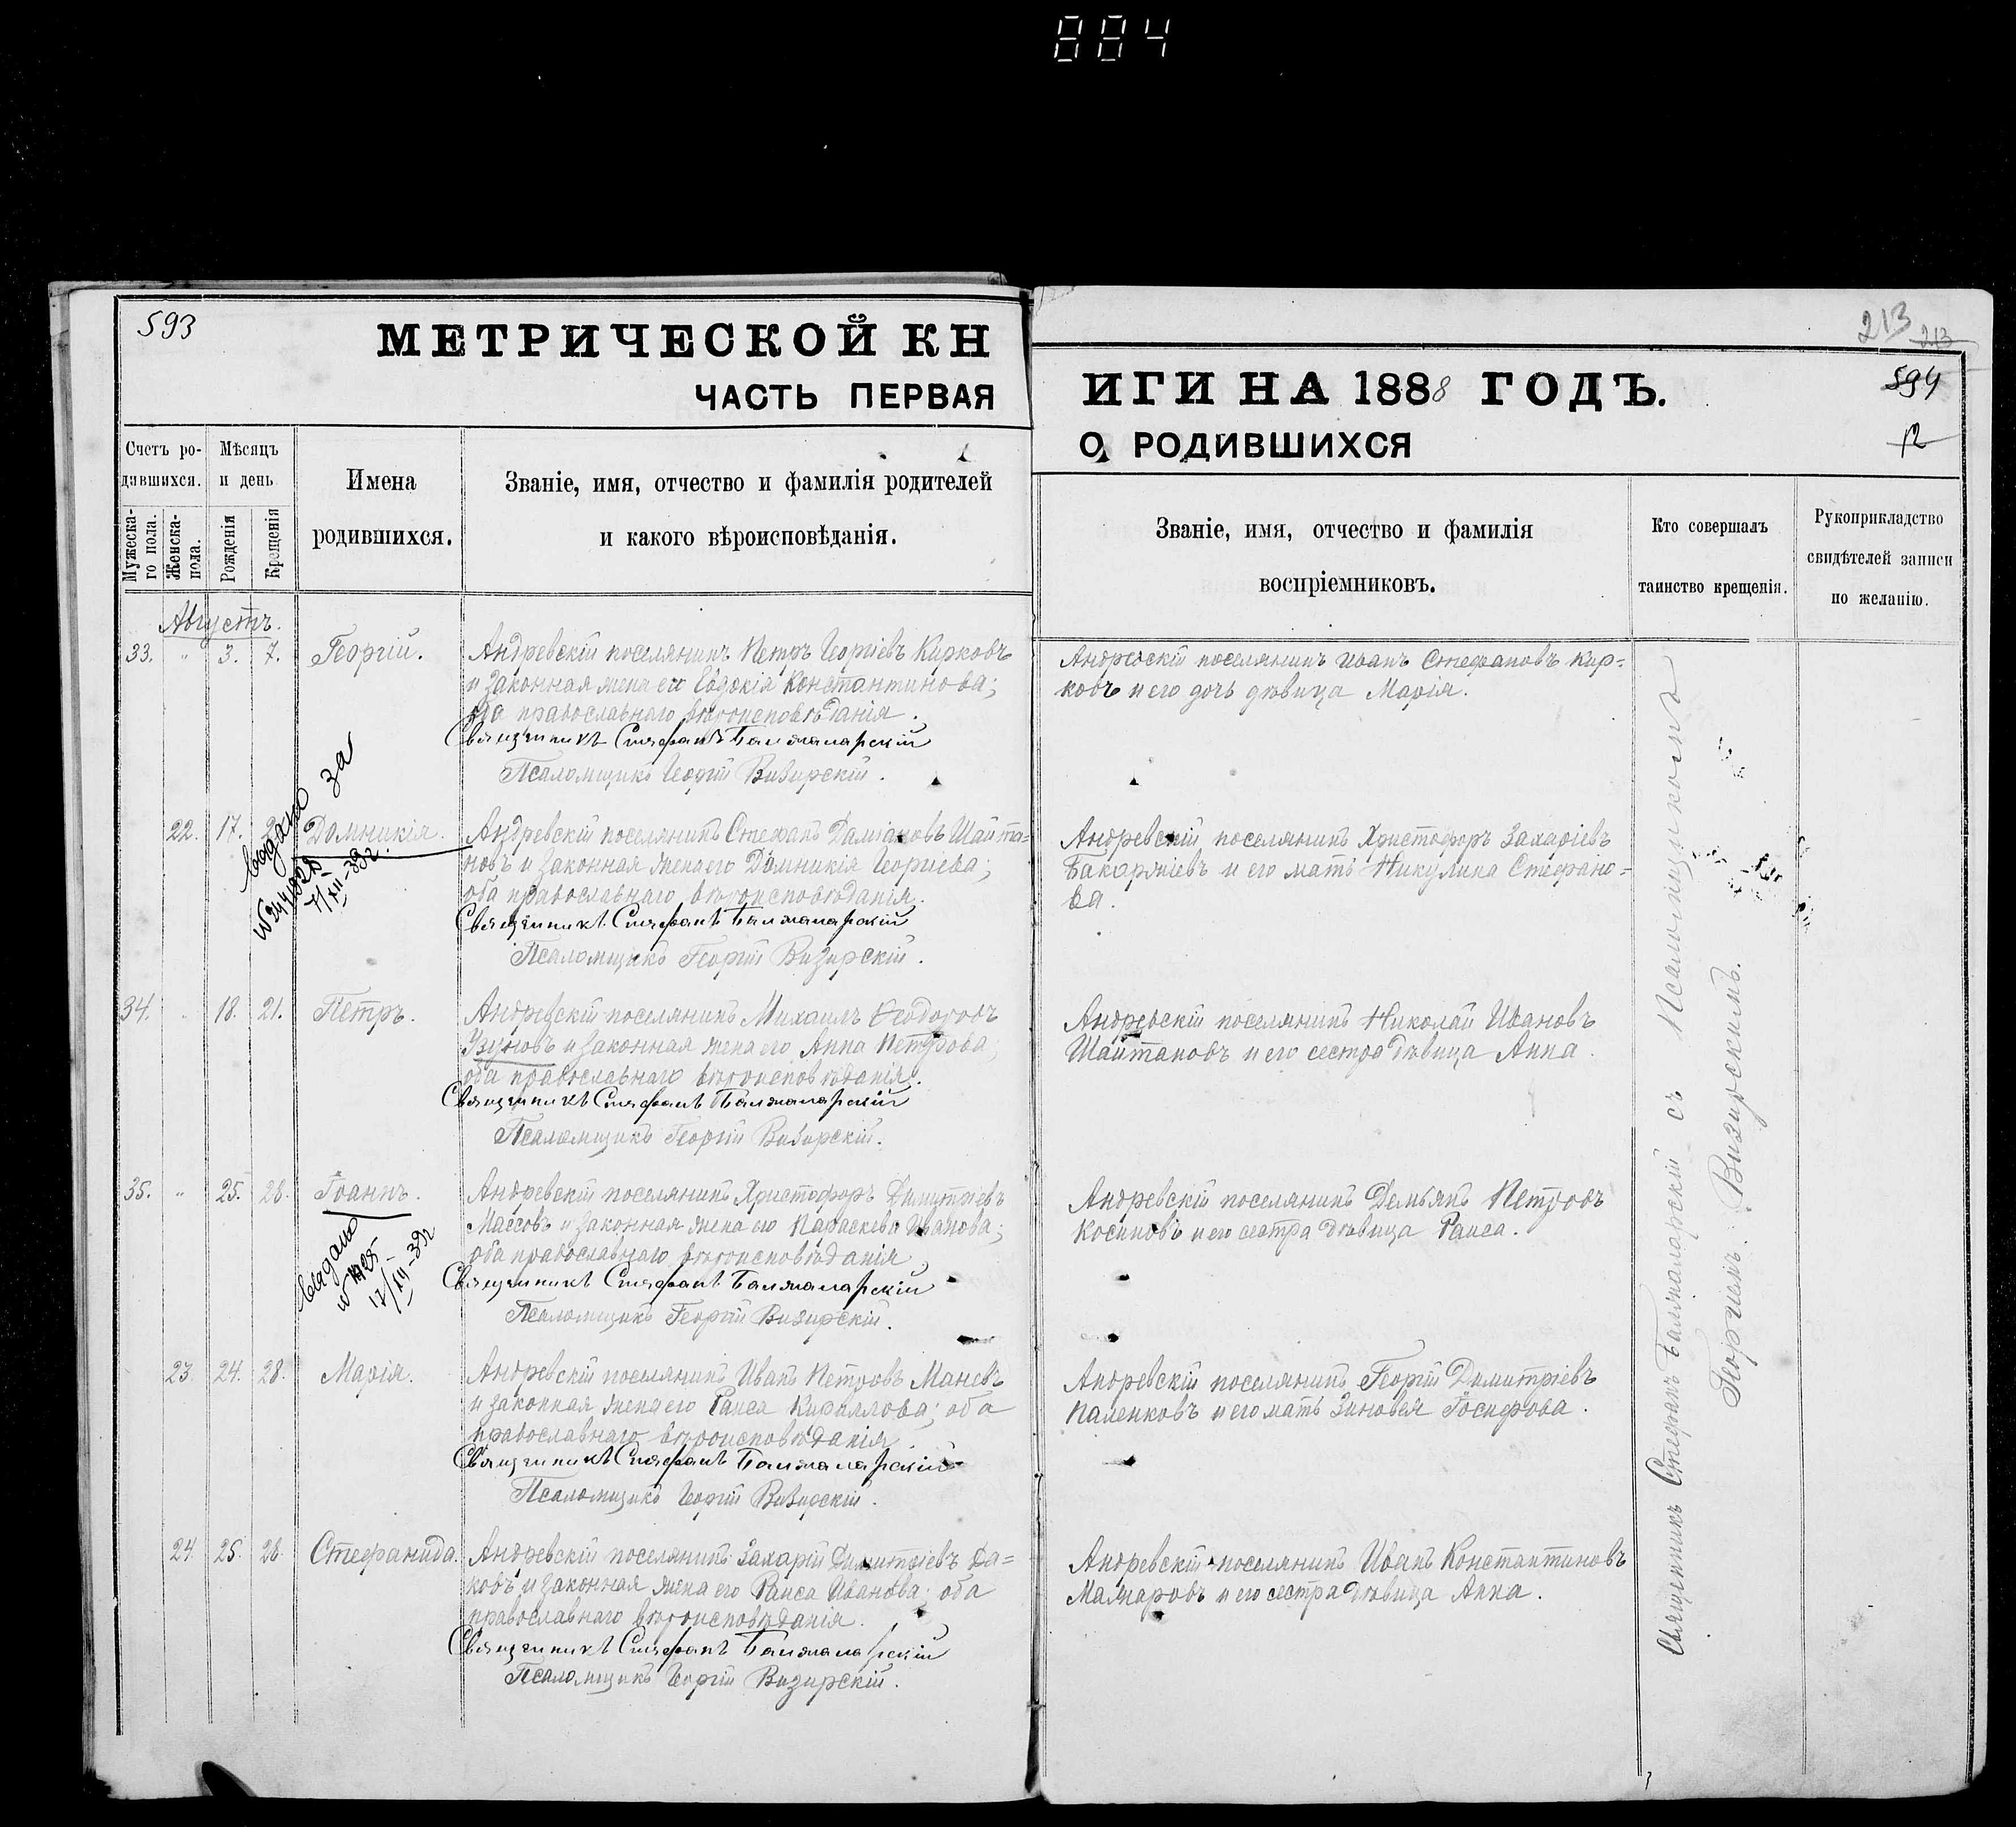 884
593
МЕТРИЧЕСКОЙ КН
ЧАСТЬ ПЕРВАЯ
213
213
594
12
ИГИ НА 1888 ГОДЪ.
О РОДИВШИХСЯ
Счетъ ро-
дившихся.
Мужеска-
го пола.
Женска-
пола.
Мѣсяцъ
и день
Рожденія
Крещенія
Имена
родившихся.
Званіе, имя, отчество и фамилія родителей
и какого вѣроисповѣданія.
Званіе, имя, отчество и фамилія
воспріемниковъ.
Кто совершалъ
таинство крещенія.
Рукоприкладство
свидѣтелей записи
по желанію.
Августъ.
33. " 3. 7. Георгій.
Андревскій поселянинъ Петръ Георгіевъ Кирковъ
и законная жена его Евдокія Константинова;
оба православнаго вѣроисповѣданія.
Священникъ Стефанъ Балжаларскій
Псаломщикъ Георгій Визирскій.
Андревскій поселянинъ Иванъ Стефановъ Кир=
ковъ и его дочь дѣвица Марія.
22. 17. Домникія.
Андревскій поселянинъ Стефанъ Даміановъ Шайта=
новъ и законная жена его Домникія Георгіева;
оба православнаго вѣроисповѣданія.
Священникъ Стефанъ Балжаларскій
Псаломщикъ Георгій Визирскій.
за
7/XII-39г.
Андревскій поселянинъ Христофоръ Захаріевъ
Бакаржіевъ и его мать Никулина Стефано=
ва.
34. 18. 21. Петръ.
Андревскій поселянинъ Михаилъ Ѳеодоровъ
Узуновъ и законная жена его Анна Петрова;
оба православнаго вѣроисповѣданія.
Священникъ Стефанъ Балжаларскій
Псаломщикъ Георгій Визирскій.
Андревскій поселянинъ Николай Ивановъ
Шайтановъ и его сестра дѣвица Анна.
35. " 25. 28. Іоаннъ.
Андревскій поселянинъ Христофоръ Димитріевъ
и законная жена его Параскева Иванова;
оба православнаго вѣроисповѣданія
Священникъ Стефанъ Балжаларскій
Псаломщикъ Георгій Визирскій.
Андревскій поселянинъ Демьянъ Петровъ
Косиновъ и его сестра дѣвица Раиса.
23. 24. 28. Марія.
Андревскій поселянинъ Иванъ Петровъ Маневъ
и законная жена его Раиса Кириллова; оба
православнаго вѣроисповѣданія.
Священникъ Стефанъ Балжаларскій
Псаломщикъ Георгій Визирскій.
Андревскій поселянинъ Георгій Димитріевъ
Паленковъ и его мать Зиновея Іосифова.
24. 25. 28. Стефанида.
Андревскій поселянинъ Захарій Димитріевъ Да=
ковъ и законная жена его Раиса Иванова; оба
православнаго вѣроисповѣданія.
Священникъ Стефанъ Балжаларскій
Псаломщикъ Георгій Визирскій.
Андревскій поселянинъ Иванъ Константиновъ
Мамаровъ и его сестра дѣвица Анна.
Священникъ Стефанъ Балжаларскій съ Псаломщикомъ
Георгіемъ Визирскимъ.